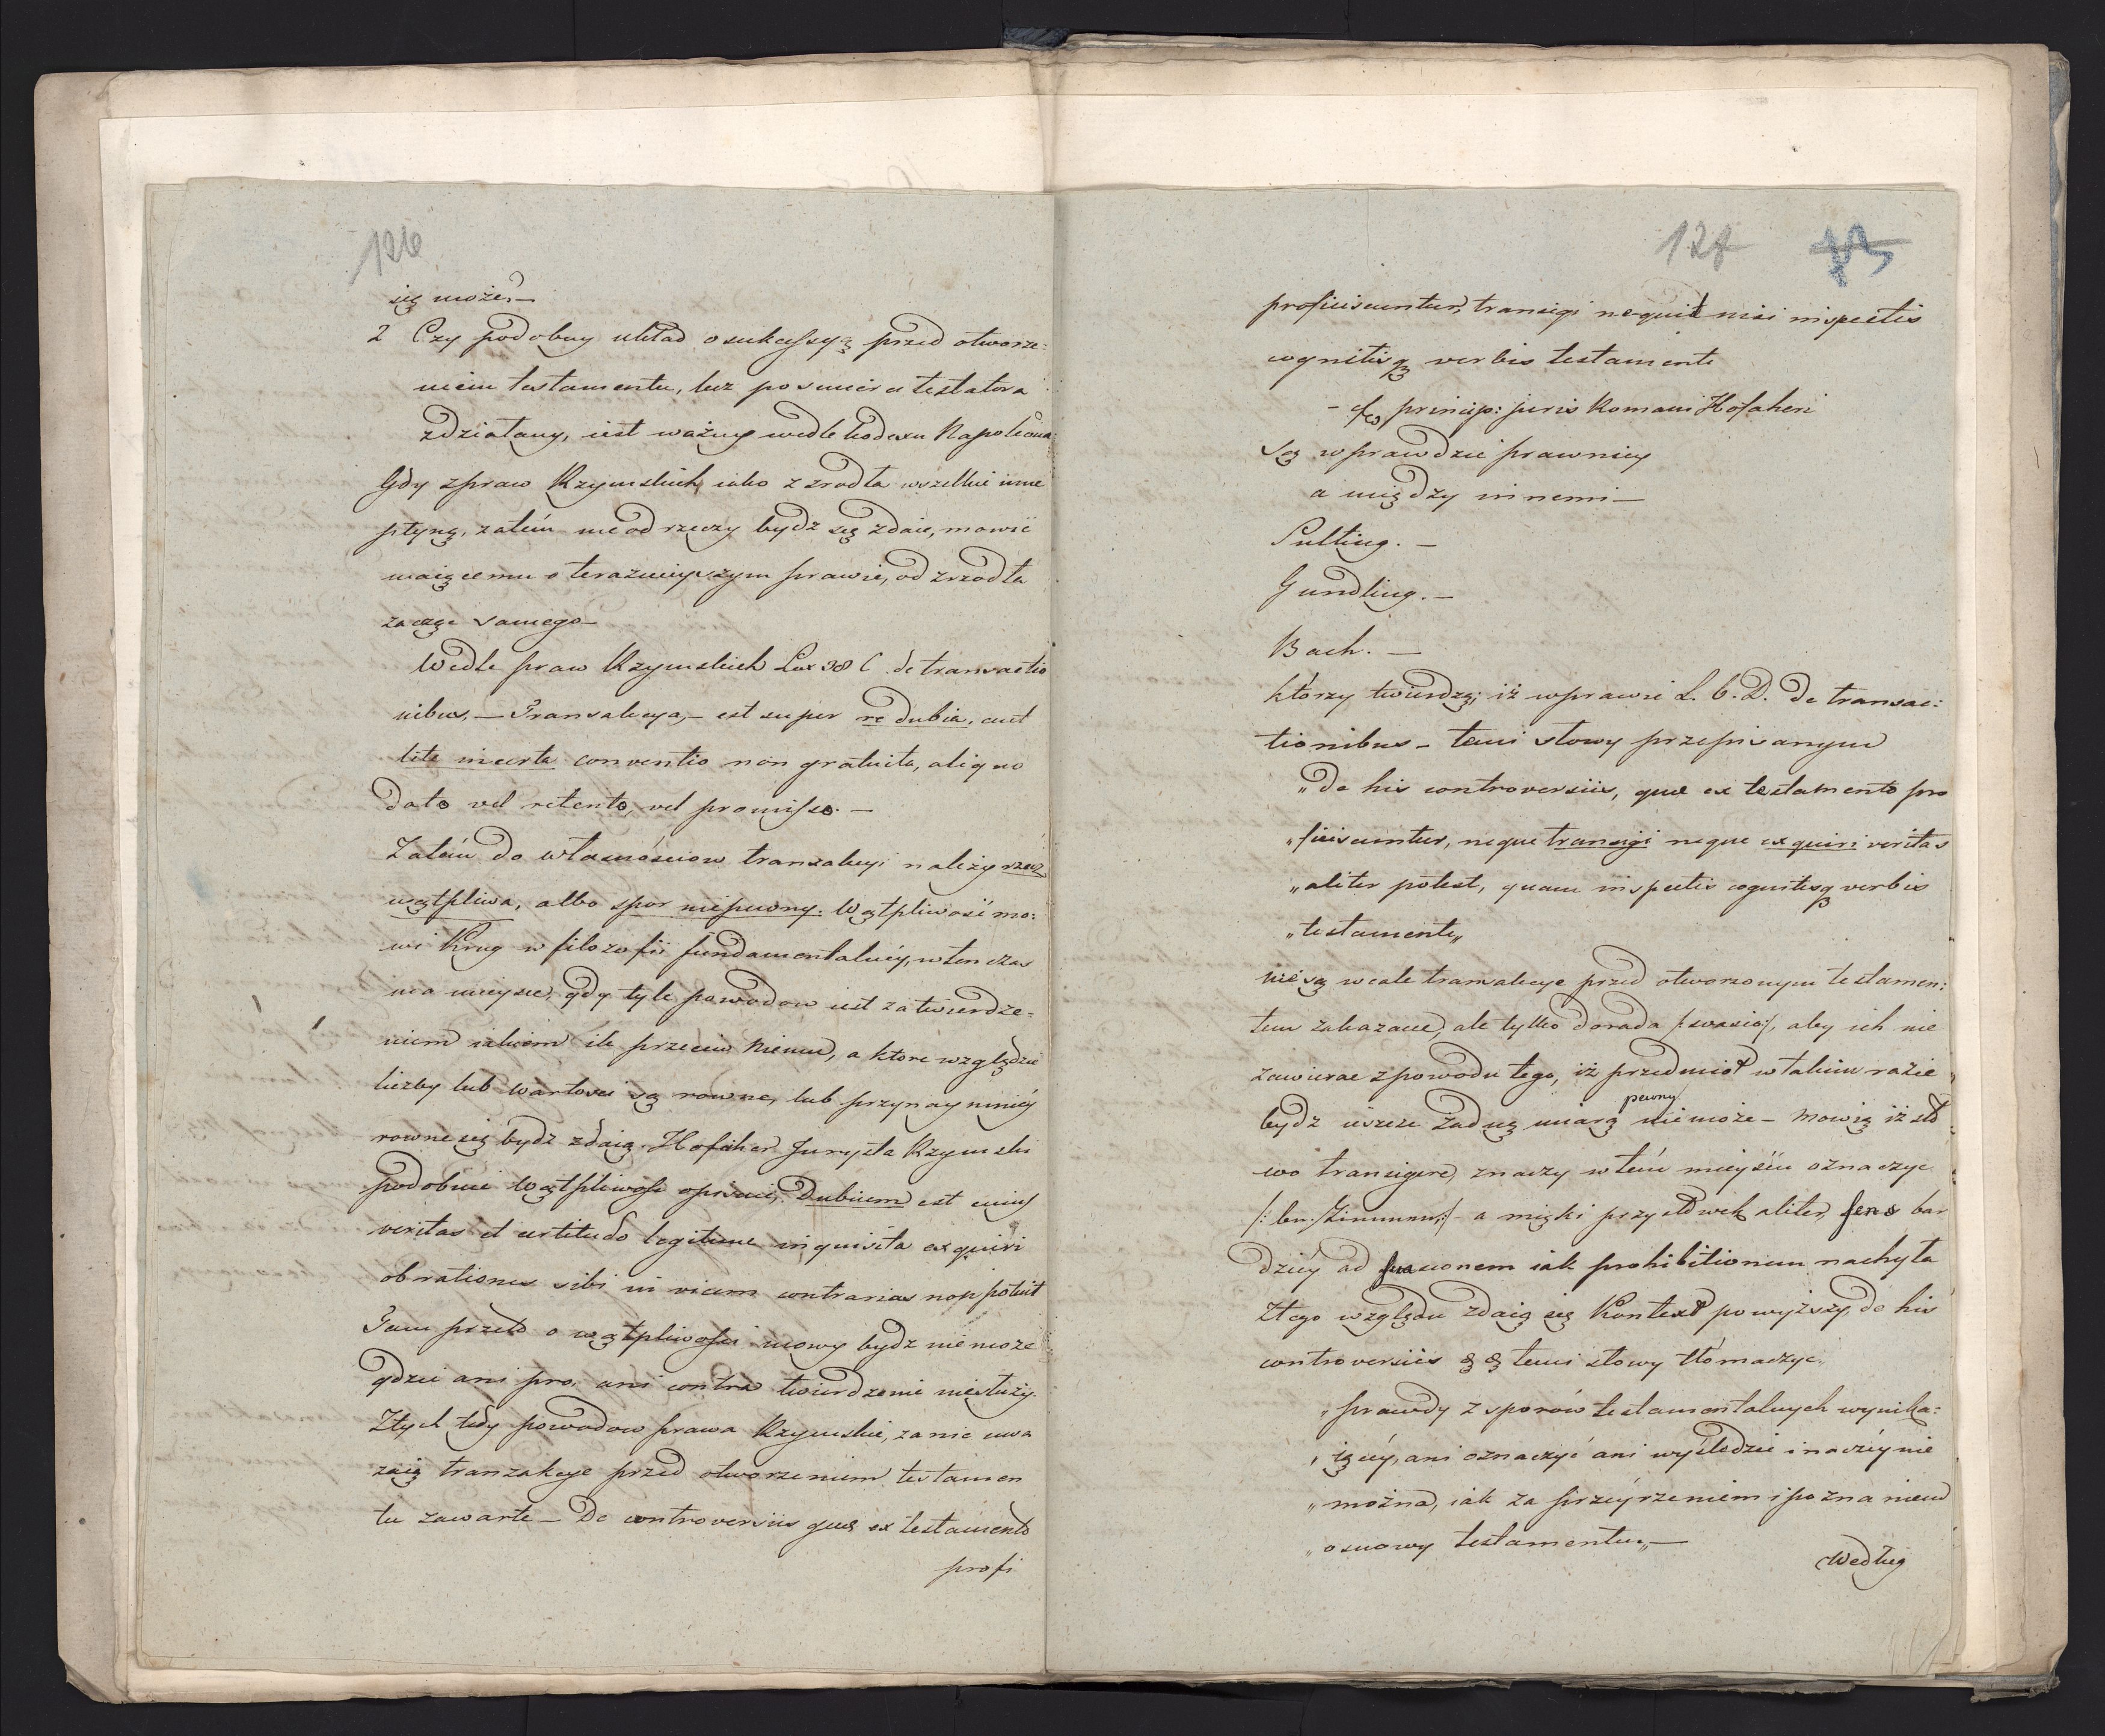 126
się może?—
2 Czy podobny układ o sukcessyą przed otworze=
niem testamentu, lecz po smierci testatora
zdziałany, iest ważny wedle Kodexu Napoleona
Gdy z praw Rzymskich iako z zrodła wszelkie inne
płyną, zatém nie od rzeczy bydz się zdaie, mowić
maiącemu o teraznieyszym prawie, od zrzodła
zacząć samego—
Wedle praw Rzymskich Lex 38 C. de transactio
nibus,— Transakcya,— est super re dubia, aut
lite incerta conventio non gratuita, aliquo
dato vel retento, vel promisso.—
Zatém do własnościow tranzakcyi należy rzecz
wątpliwa, albo spor niepewny: Wątpliwość mo:
wi Krug w filozofii fundamentalnéy, w ten czas
ma mieysce, gdy tyle powodow iest za twierdze=
niem iakiem ile przeciw niemu, a ktore względzie
liczby lub wartosci są rowne, lub przynaymniéy
rowne się bydz zdaią. Hofaker Jurysta Rzymski
podobnie wątpliwość opisuie, Dubium est cuius
veritas et certitudo legitime inquisita exquiri
ob rationes sibi in vicem contrarias non potuit
Tam przeto o wątpliwości mowy bydz nie moze
gdzie ani pro, ani contra twierdzenie nie służy.
Z tych tedy powodow prawa Rzymskie, za nic uwa
zaią tranzakcye przed otworzeniem testamen
tu zawarte— De controversiis quæ ex testamento
profi
127
proficiscuntur, transigi nequit nisi inspectis
cognitisq verbis testamenti
- princip: juris Romani Hofakeri
Są wprawdzie prawnicy
a między innemi—
Pulting.—
Gundling.—
Bach.—
którzy twierdzą, iż w prawie L. 6. D. de transac:
tionibus - temi słowy przepisanym
„De his controversiis, quæ ex testamento pro
„ficiscuntur, neque transigi neque exquiri veritas
„aliter potest, quam inspectis cognitisq verbis
„testamenti„
nie są wcale transakcye przed otworzonym testamen:
tem zakazane, ale tylko dorada /:suasio:/, aby ich nie
zawierac z powodu tego, iż przedmiot w takim razie
pewny
bydz ieszcze żadną miarą nie może — Mowią iż sło
wo transigere, znaczy w tém mieyscu oznaczyc
a miękki przysłówek aliter, sens bar
dziéy ad suasionem iak prohibitionem nachyla
Z tego względu zdaią się Kontext powyższy, de his
controversiis temi słowy tłomaczyc„
„prawdy z sporów testamentalnych wynika:
„iącéy, ani oznaczyć ani wyśledzic inaczéy nie
„można, iak za przeyrzeniem i poznaniem
„osnowy testamentu„—
Według